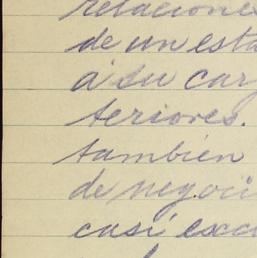 relaciones
de un esta
á su car
teriores.
también
de negoci
casi exc